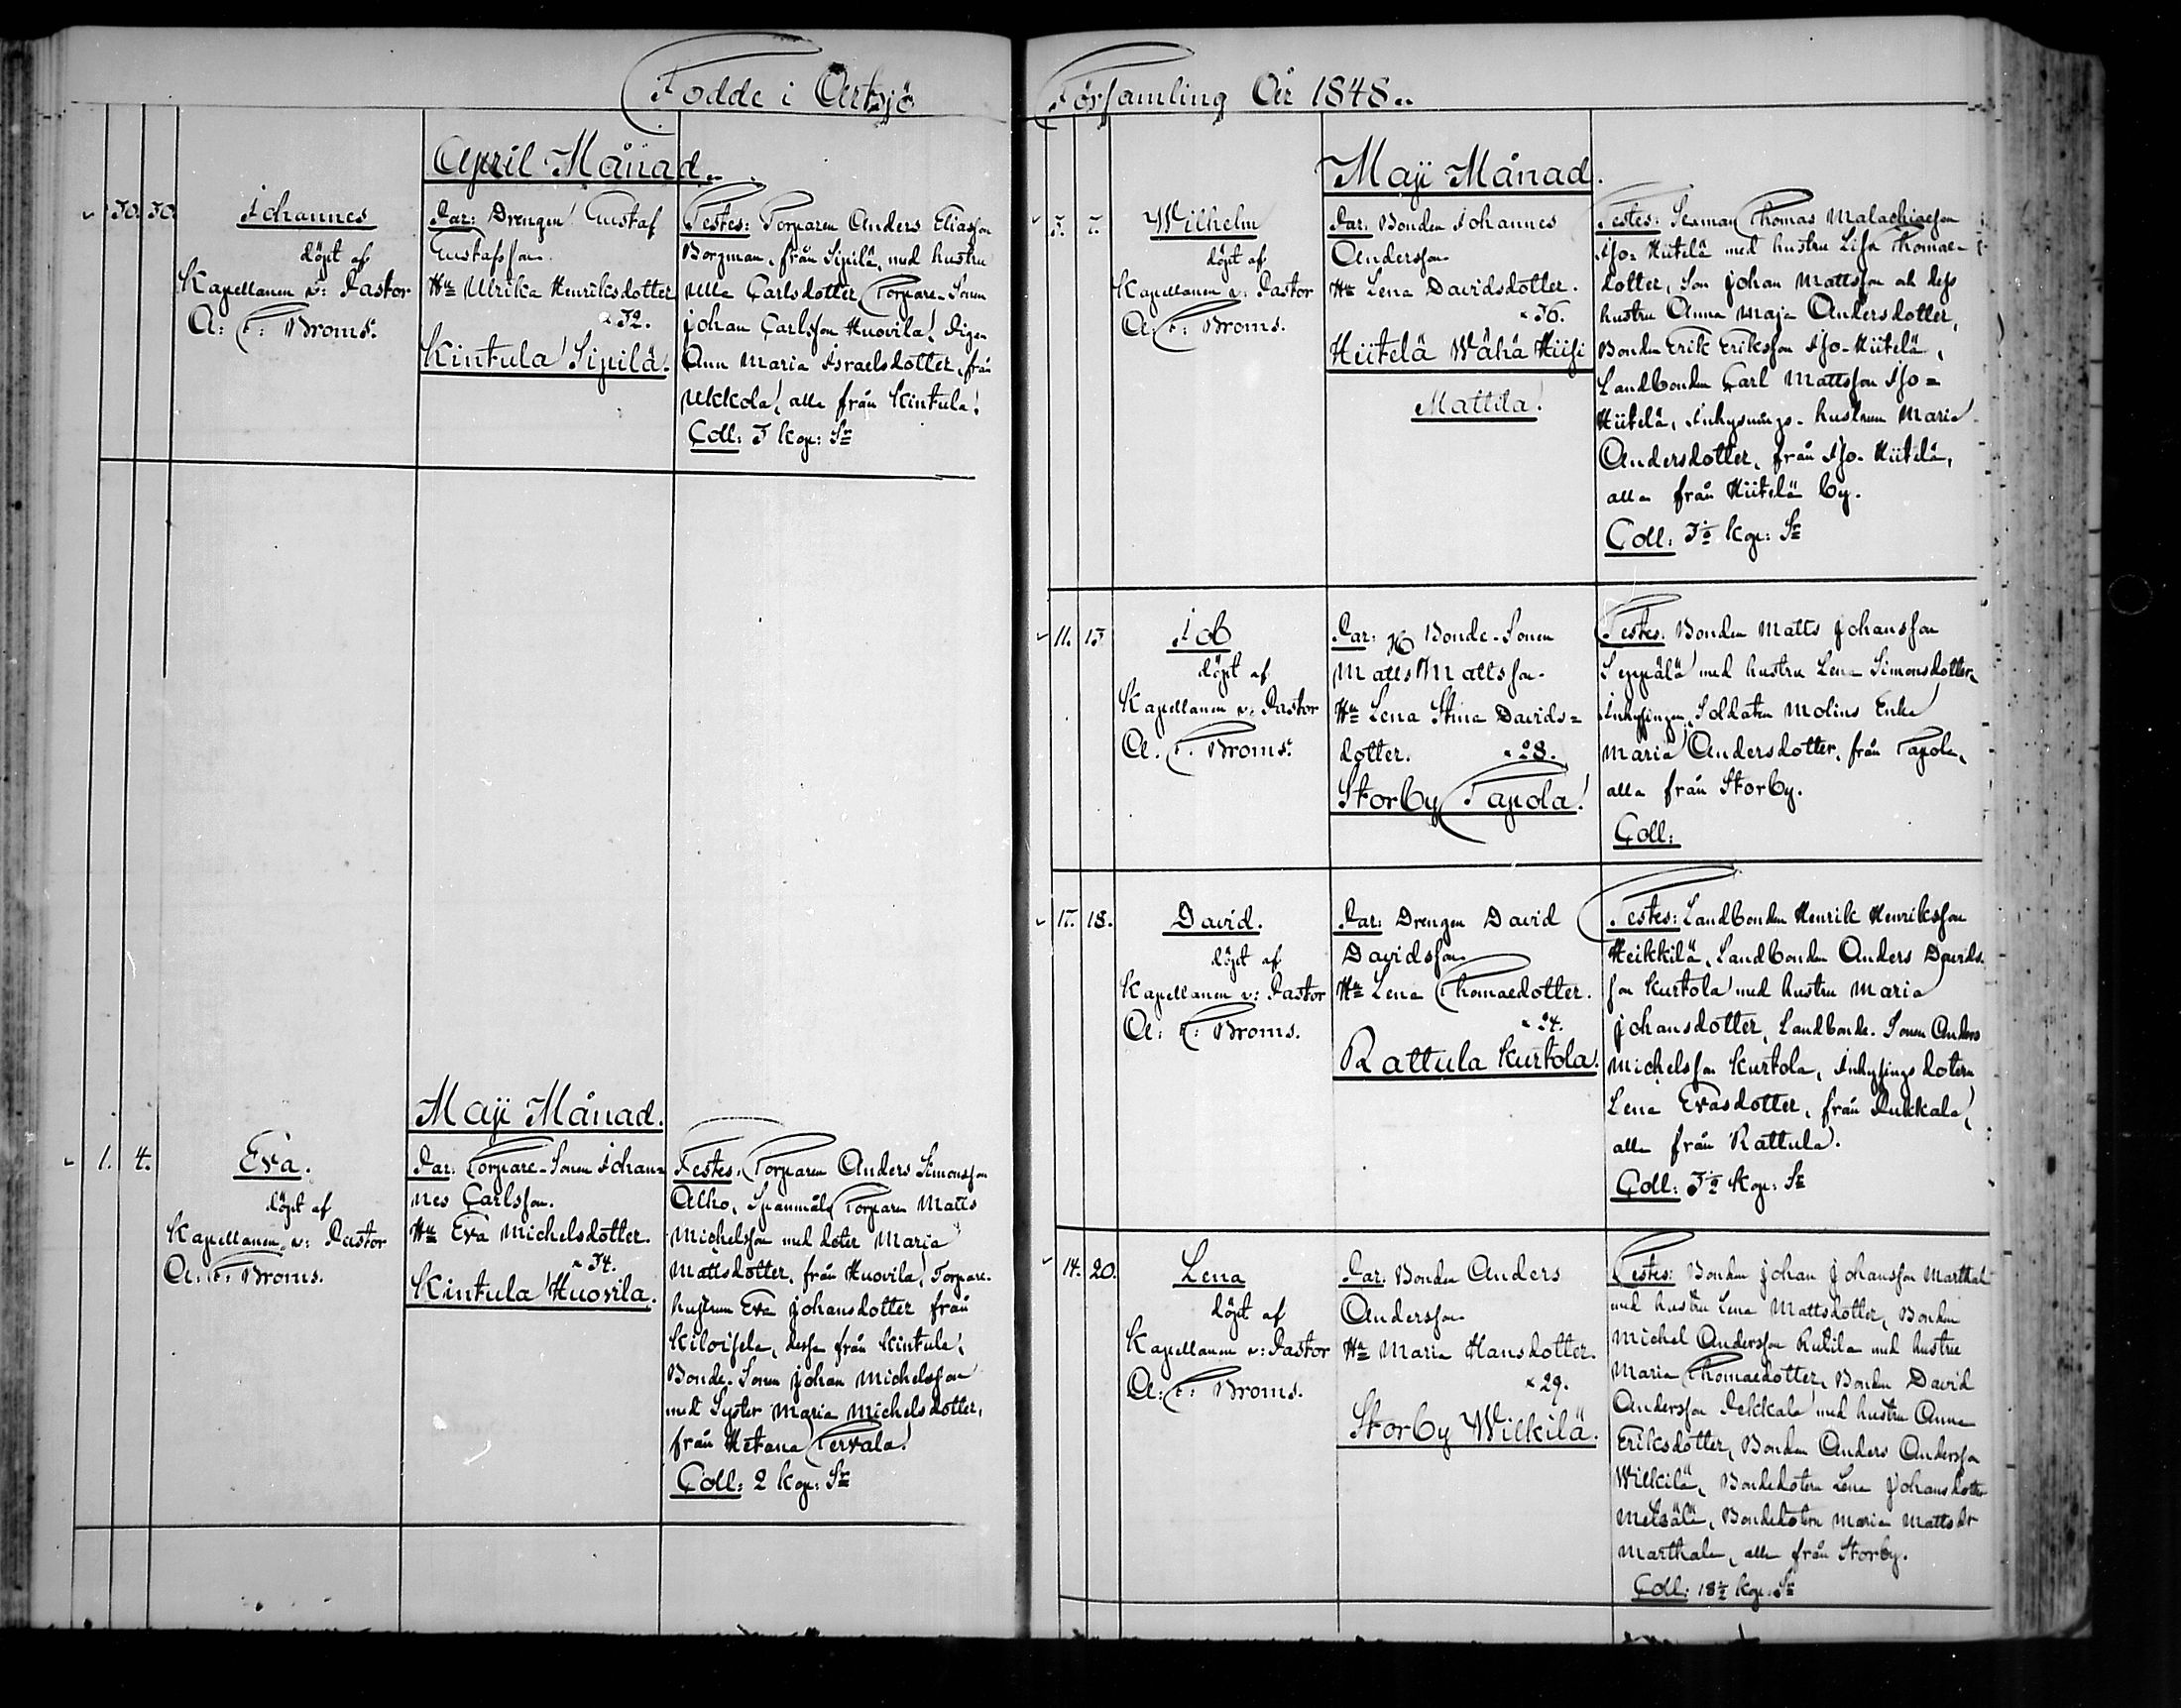 Födde i Artsjö
April Månad.
30. 30. Johannes
döpt af
Kapellanen v: Pastor
A: F: Broms.
Par: Drengen Gustaf
Gustafsson.
Hu Ulrika Henriksdotter
32.
Kintula Sipilä.
Testes: Torparen Anders Eliasson
Borgman, från Sipilä, med hustru
Ulla Carlsdotter, Torpare-Sonen
Johan Carlsson Huovila, Pigan
Ann Maria Israelsdotter, från
Ukkola, alla från Kintula.
Coll: 3 kop: Sr
Maji Månad.
1. 4. Eva.
döpt af
Kapellanen v: Pastor
A: F: Broms.
Par: Torpare-Sonen Johan-
nes Carlsson.
Hu Eva Michelsdotter.
34.
Kintula Huovila.
Testes: Torparen Anders Simonsson
Alho, Spanmåls Torparen Matts
Michelsson med doter Maria
Mattsdotter, från Huovila, Torpare-
hustrun Eva Johansdotter från
Kiloisela, dessa från Kintula,
Bonde-Sonen Johan Michelsson
med Syster Maria Michelsdotter,
från Hetana Tervala.
Coll: 2 kop: Sr
Församling År 1848.
Maji Månad.
5. 7. Wilhelm
döpt af
Kapellanen v: Pastor
A: F: Broms.
Par: Bonden Johannes
Andersson
Hu Lena Davidsdotter.
36.
Hiitelä Wähä Hiisi
Mattila.
Testes: Sexman Thomas Malachiaesson
Iso-Hiitelä med hustru Lisa Thomae-
dotter, Son Johan Mattsson och dess
hustru Anna Maja Andersdotter,
Bonden Erik Eriksson Iso-Hiitelä,
Landbonden Carl Mattsson Iso-
Hiitelä, Inhysnings-hustrun Maria
Andersdotter, från Iso-Hiitelä,
alla från Hiitelä by.
Coll: 3½ kop: Sr
11. 13 Job
döpt af
Kapellanen v: Pastor
A. F. Broms.
Par: Bonde-Sonen
Matts Mattsson.
Hu Lena Stina Davids-
dotter. 28.
Storby Tapola.
Testes: Bonden Matts Johansson
Seppälä med hustru Lena Simonsdotter,
Inhysingen, Soldaten Molins Enka
Maria Andersdotter, från Tapola,
alla från Storby.
Coll:
17. 18. David.
döpt af
Kapellanen v: Pastor
A: F: Broms.
Par: Drengen David
Davidsson
Hu Lena Thomaedotter.
24.
Rattula Kurtola.
Testes: Landbonden Henrik Henriksson
Heikkilä, Landbonden Anders Davids-
son Kurtola med hustru Maria
Johansdotter, Landbonde-Sonen Anders
Michelsson Kurtola, Inhysings dotern
Lena Evasdotter, från Pukkala,
alla från Rattula.
Coll: 3½ kop: Sr
14. 20. Lena
döpt af
Kapellanen v: Pastor
A: F: Broms.
Par: Bonden Anders
Andersson
Hu Maria Hansdotter.
29.
Storby Wilkilä.
Testes: Bonden Johan Johansson Marthala
med hustru Lena Mattsdotter, Bonden
Michel Andersson Rutila med hustru
Maria Thomaedotter, Bonden David
Andersson Pekkala med hustru Anna
Eriksdotter, Bonden Anders Andersson
Wilkilä, Bondedotern Lena Johansdotter
Metsälä, Bondedotern Maria Mattsdr
Marthala, alla från Storby.
Coll: 18½ kop: Sr